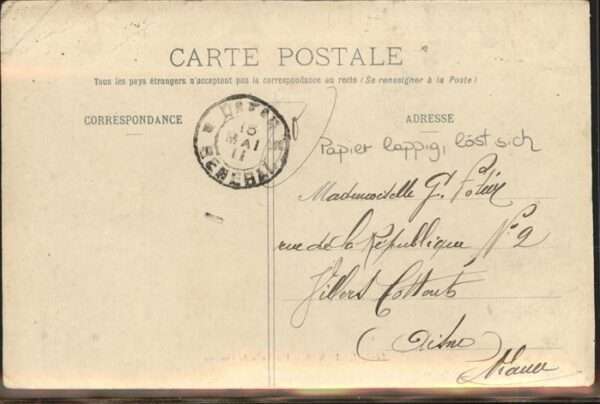 CARTE POSTALE
Tous les pays étrangers n'acceptent pas la correspondance au recto (Se renseigner à la Poste)
CORRESPONDANCE
ADRESSE
15
MAI
11
SENEGAL
Papier lappig, löst sich
Mademoiselle G.
rue de la République N° 2
Villers Cotterets
(Aisne)
France